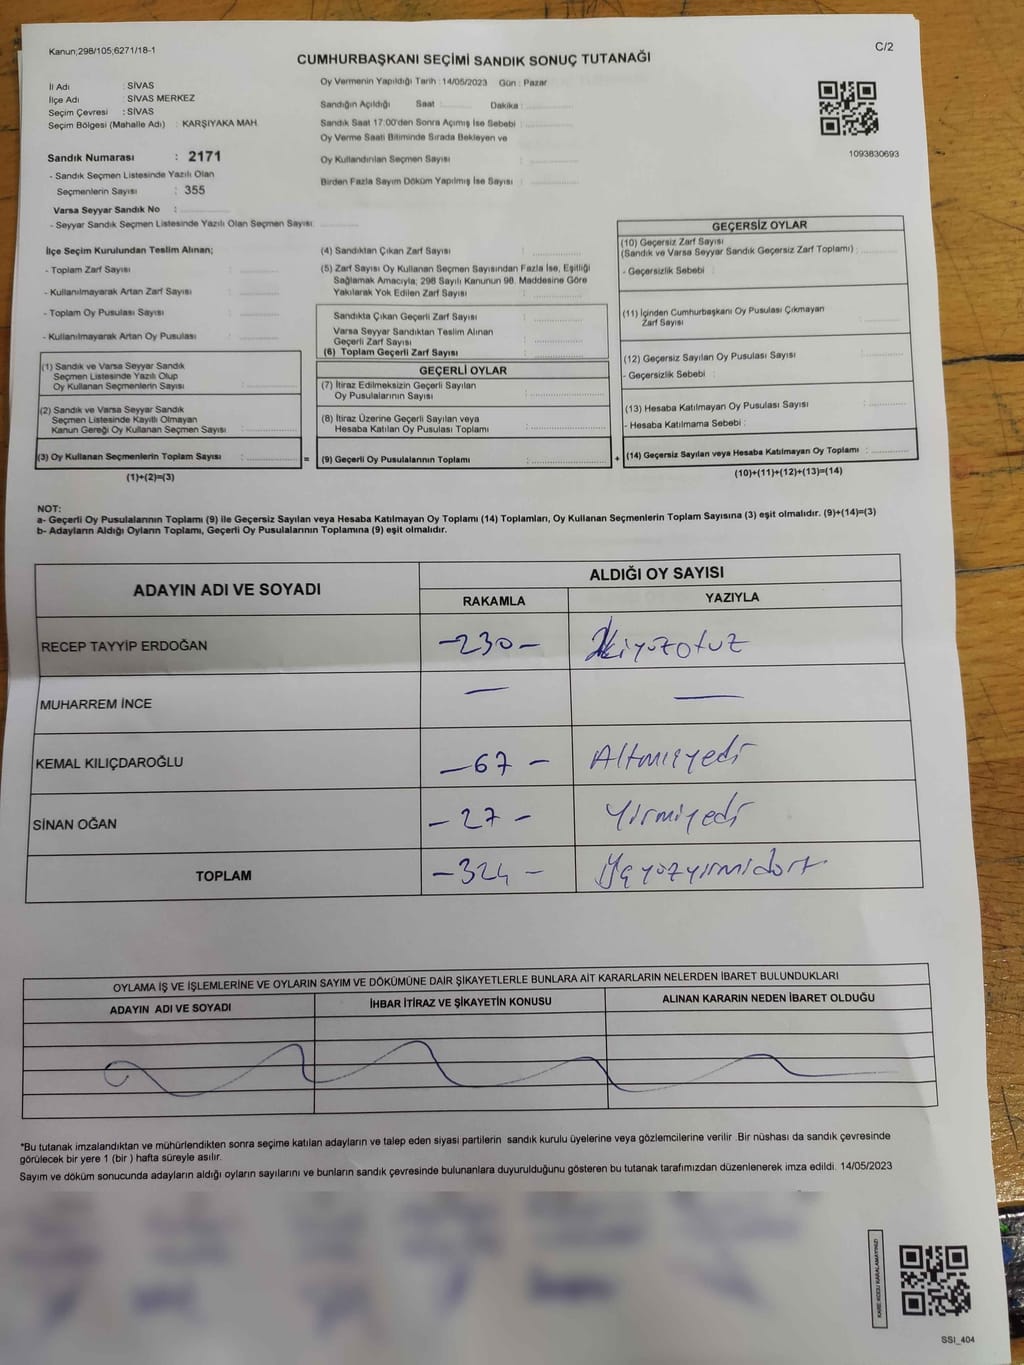 Kanun;298/105;6271/18-1
C/2
CUMHURBAŞKANI SEÇİMİ SANDIK SONUÇ TUTANAĞI
İl Adı : SİVAS
İlçe Adı : SİVAS MERKEZ
Seçim Çevresi : SİVAS
Seçim Bölgesi (Mahalle Adı) : KARŞIYAKA MAH.
Sandık Numarası : 2171
- Sandık Seçmen Listesinde Yazılı Olan
Seçmenlerin Sayısı : 355
Varsa Seyyar Sandık No :
- Seyyar Sandık Seçmen Listesinde Yazılı Olan Seçmen Sayısı:
Oy Vermenin Yapıldığı Tarih : 14/05/2023 Gün : Pazar
Sandığın Açıldığı Saat : Dakika :
Sandık Saat 17:00'den Sonra Açımış İse Sebebi :
Oy Verme Saati Bitiminde Sırada Bekleyen ve
Oy Kullandırılan Seçmen Sayısı :
Birden Fazla Sayım Döküm Yapılmış İse Sayısı :
1093830693
İlçe Seçim Kurulundan Teslim Alınan;
- Toplam Zarf Sayısı :
- Kullanılmayarak Artan Zarf Sayısı :
- Toplam Oy Pusulası Sayısı :
- Kullanılmayarak Artan Oy Pusulası :
(1) Sandık ve Varsa Seyyar Sandık
Seçmen Listesinde Yazılı Olup
Oy Kullanan Seçmenlerin Sayısı :
(2) Sandık ve Varsa Seyyar Sandık
Seçmen Listesinde Kayıtlı Olmayan
Kanun Gereği Oy Kullanan Seçmen Sayısı :
(3) Oy Kullanan Seçmenlerin Toplam Sayısı :
(1)+(2)=(3)
(4) Sandıktan Çıkan Zarf Sayısı :
(5) Zarf Sayısı Oy Kullanan Seçmen Sayısından Fazla İse, Eşitliği
Sağlamak Amacıyla; 298 Sayılı Kanunun 98. Maddesine Göre
Yakılarak Yok Edilen Zarf Sayısı :
Sandıkta Çıkan Geçerli Zarf Sayısı :
Varsa Seyyar Sandıktan Teslim Alınan
Geçerli Zarf Sayısı :
(6) Toplam Geçerli Zarf Sayısı :
GEÇERLİ OYLAR
(7) İtiraz Edilmeksizin Geçerli Sayılan
Oy Pusulalarının Sayısı :
(8) İtiraz Üzerine Geçerli Sayılan veya
Hesaba Katılan Oy Pusulası Toplamı :
=
(9) Geçerli Oy Pusulalarının Toplamı :
+
GEÇERSİZ OYLAR
(10) Geçersiz Zarf Sayısı
(Sandık ve Varsa Seyyar Sandık Geçersiz Zarf Toplamı) :
- Geçersizlik Sebebi :
(11) İçinden Cumhurbaşkanı Oy Pusulası Çıkmayan
Zarf Sayısı :
(12) Geçersiz Sayılan Oy Pusulası Sayısı :
- Geçersizlik Sebebi :
(13) Hesaba Katılmayan Oy Pusulası Sayısı :
- Hesaba Katılmama Sebebi :
(14) Geçersiz Sayılan veya Hesaba Katılmayan Oy Toplamı :
(10)+(11)+(12)+(13)=(14)
NOT:
a- Geçerli Oy Pusulalarının Toplamı (9) ile Geçersiz Sayılan veya Hesaba Katılmayan Oy Toplamı (14) Toplamları, Oy Kullanan Seçmenlerin Toplam Sayısına (3) eşit olmalıdır. (9)+(14)=(3)
b- Adayların Aldığı Oyların Toplamı, Geçerli Oy Pusulalarının Toplamına (9) eşit olmalıdır.
ADAYIN ADI VE SOYADI
ALDIĞI OY SAYISI
RAKAMLA YAZIYLA
RECEP TAYYİP ERDOĞAN -230- İkiyüzotuz
MUHARREM İNCE — —
KEMAL KILIÇDAROĞLU -67- Altmışyedi
SİNAN OĞAN -27- Yirmiyedi
TOPLAM -324- Üçyüzyirmidört
OYLAMA İŞ VE İŞLEMLERİNE VE OYLARIN SAYIM VE DÖKÜMÜNE DAİR ŞİKAYETLERLE BUNLARA AİT KARARLARIN NELERDEN İBARET BULUNDUKLARI
ADAYIN ADI VE SOYADI
İHBAR İTİRAZ VE ŞİKAYETİN KONUSU
ALINAN KARARIN NEDEN İBARET OLDUĞU
*Bu tutanak imzalandıktan ve mühürlendikten sonra seçime katılan adayların ve talep eden siyasi partilerin sandık kurulu üyelerine veya gözlemcilerine verilir .Bir nüshası da sandık çevresinde
görülecek bir yere 1 (bir ) hafta süreyle asılır.
Sayım ve döküm sonucunda adayların aldığı oyların sayılarını ve bunların sandık çevresinde bulunanlara duyurulduğunu gösteren bu tutanak tarafımızdan düzenlenerek imza edildi. 14/05/2023
KARE KODU KARALAMAYINIZ!
SSI_404